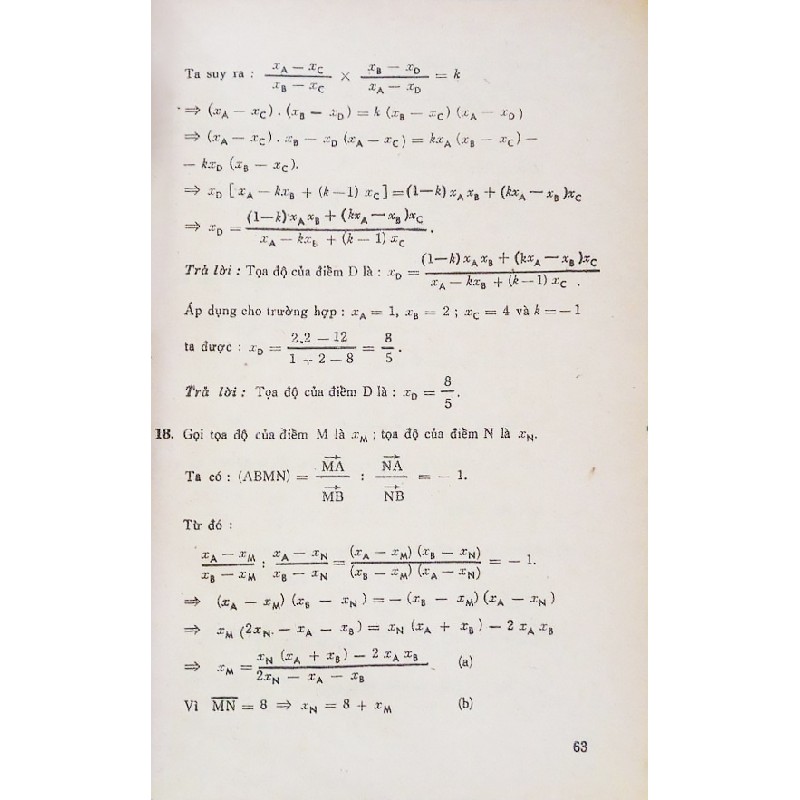 Ta suy ra : (x_A − x_C)/(x_B − x_C) × (x_B − x_D)/(x_A − x_D) = k
⇒ (x_A − x_C) . (x_B − x_D) = k (x_B − x_C) (x_A − x_D)
⇒ (x_A − x_C) . x_B − x_D (x_A − x_C) = kx_A (x_B − x_C) −
− kx_D (x_B − x_C).
⇒ x_D [x_A − kx_B + (k−1) x_C] = (1−k) x_A x_B + (kx_A − x_B)x_C
⇒ x_D = ((1−k) x_A x_B + (kx_A − x_B)x_C)/(x_A − kx_B + (k − 1) x_C).
Trả lời : Tọa độ của điểm D là : x_D = ((1−k) x_A x_B + (kx_A − x_B)x_C)/(x_A − kx_B + (k−1) x_C) .
Áp dụng cho trường hợp : x_A = 1, x_B = 2 ; x_C = 4 và k = − 1
ta được : x_D = (2.2 − 12)/(1 + 2 − 8) = 8/5.
Trả lời : Tọa độ của điểm D là : x_D = 8/5.
18. Gọi tọa độ của điểm M là x_M ; tọa độ của điểm N là x_N.
Ta có : (ABMN) = MA/MB : NA/NB = − 1.
Từ đó :
(x_A − x_M)/(x_B − x_M) : (x_A − x_N)/(x_B − x_N) = ((x_A − x_M) (x_B − x_N))/((x_B − x_M) (x_A − x_N)) = − 1.
⇒ (x_A − x_M) (x_B − x_N) = − (x_B − x_M) (x_A − x_N)
⇒ x_M (2x_N − x_A − x_B) = x_N (x_A + x_B) − 2 x_A x_B
⇒ x_M = (x_N (x_A + x_B) − 2 x_A x_B)/(2x_N − x_A − x_B) (a)
Vì MN = 8 ⇒ x_N = 8 + x_M (b)
63